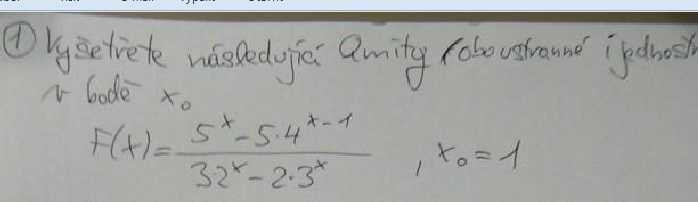 ① Vyšetřete následující limity (oboustranné i jednostr
v bodě x₀
F(x) = (5^x - 5·4^(x-1)) / (3·2^x - 2·3^x) , x₀ = 1